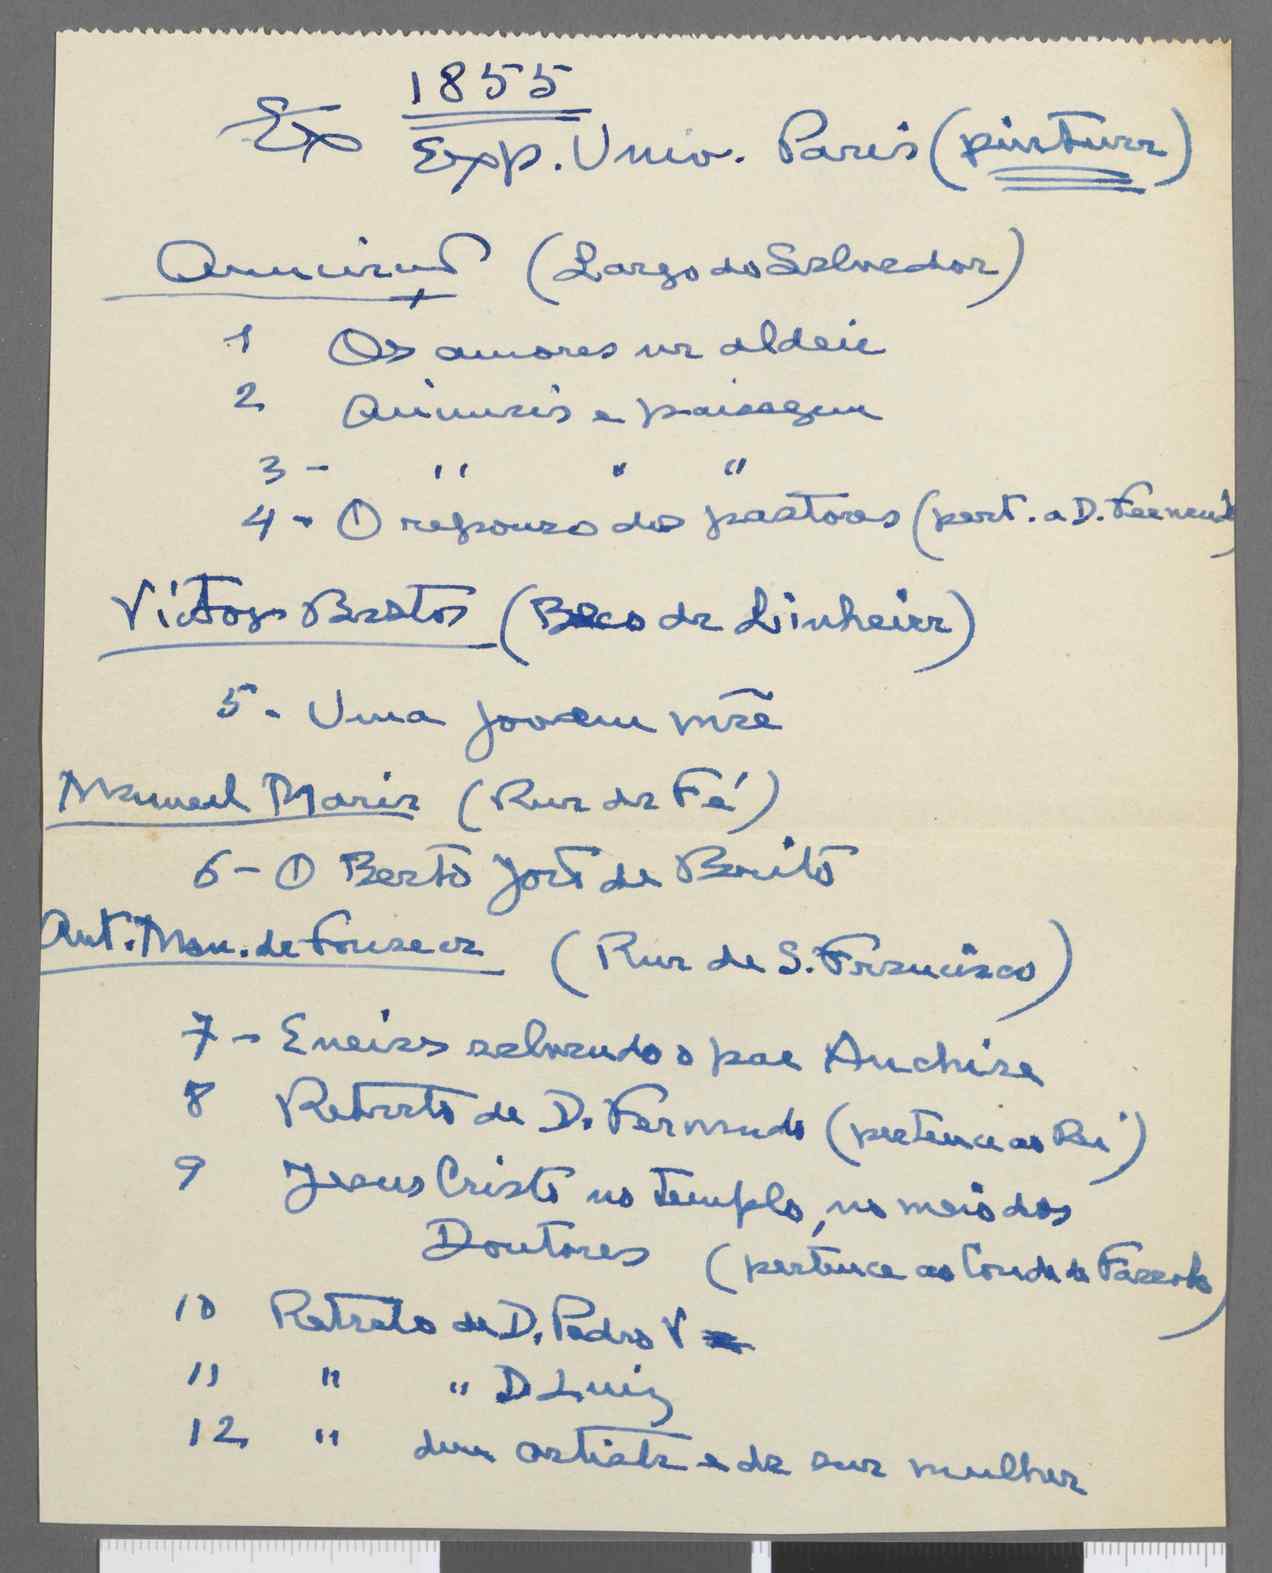 1855
Exp Exp. Univ. Paris (pintura)
Anunciação (Largo do Salvador)
1 Os amores na aldeia
2 Animais e paisagem
3 - " " "
4 - O repouso dos pastores (pert. a D. Fernando)
Victor Bastos (Beco da Linheira)
5 - Uma jovem mãe
Manuel Maria (Rua da Fé)
6 - O Berto José de Brito
Ant. Man. da Fonseca (Rua de S. Francisco)
7 - Eneias salvando o pae Anchise
8 Retrato de D. Fernando (pertence ao Rei)
9 Jesus Cristo no Templo, no meio dos
Doutores (pertence ao Conde de Farrobo)
10 Retrato de D. Pedro V
11 " " D Luiz
12 " dum artista e da sua mulher